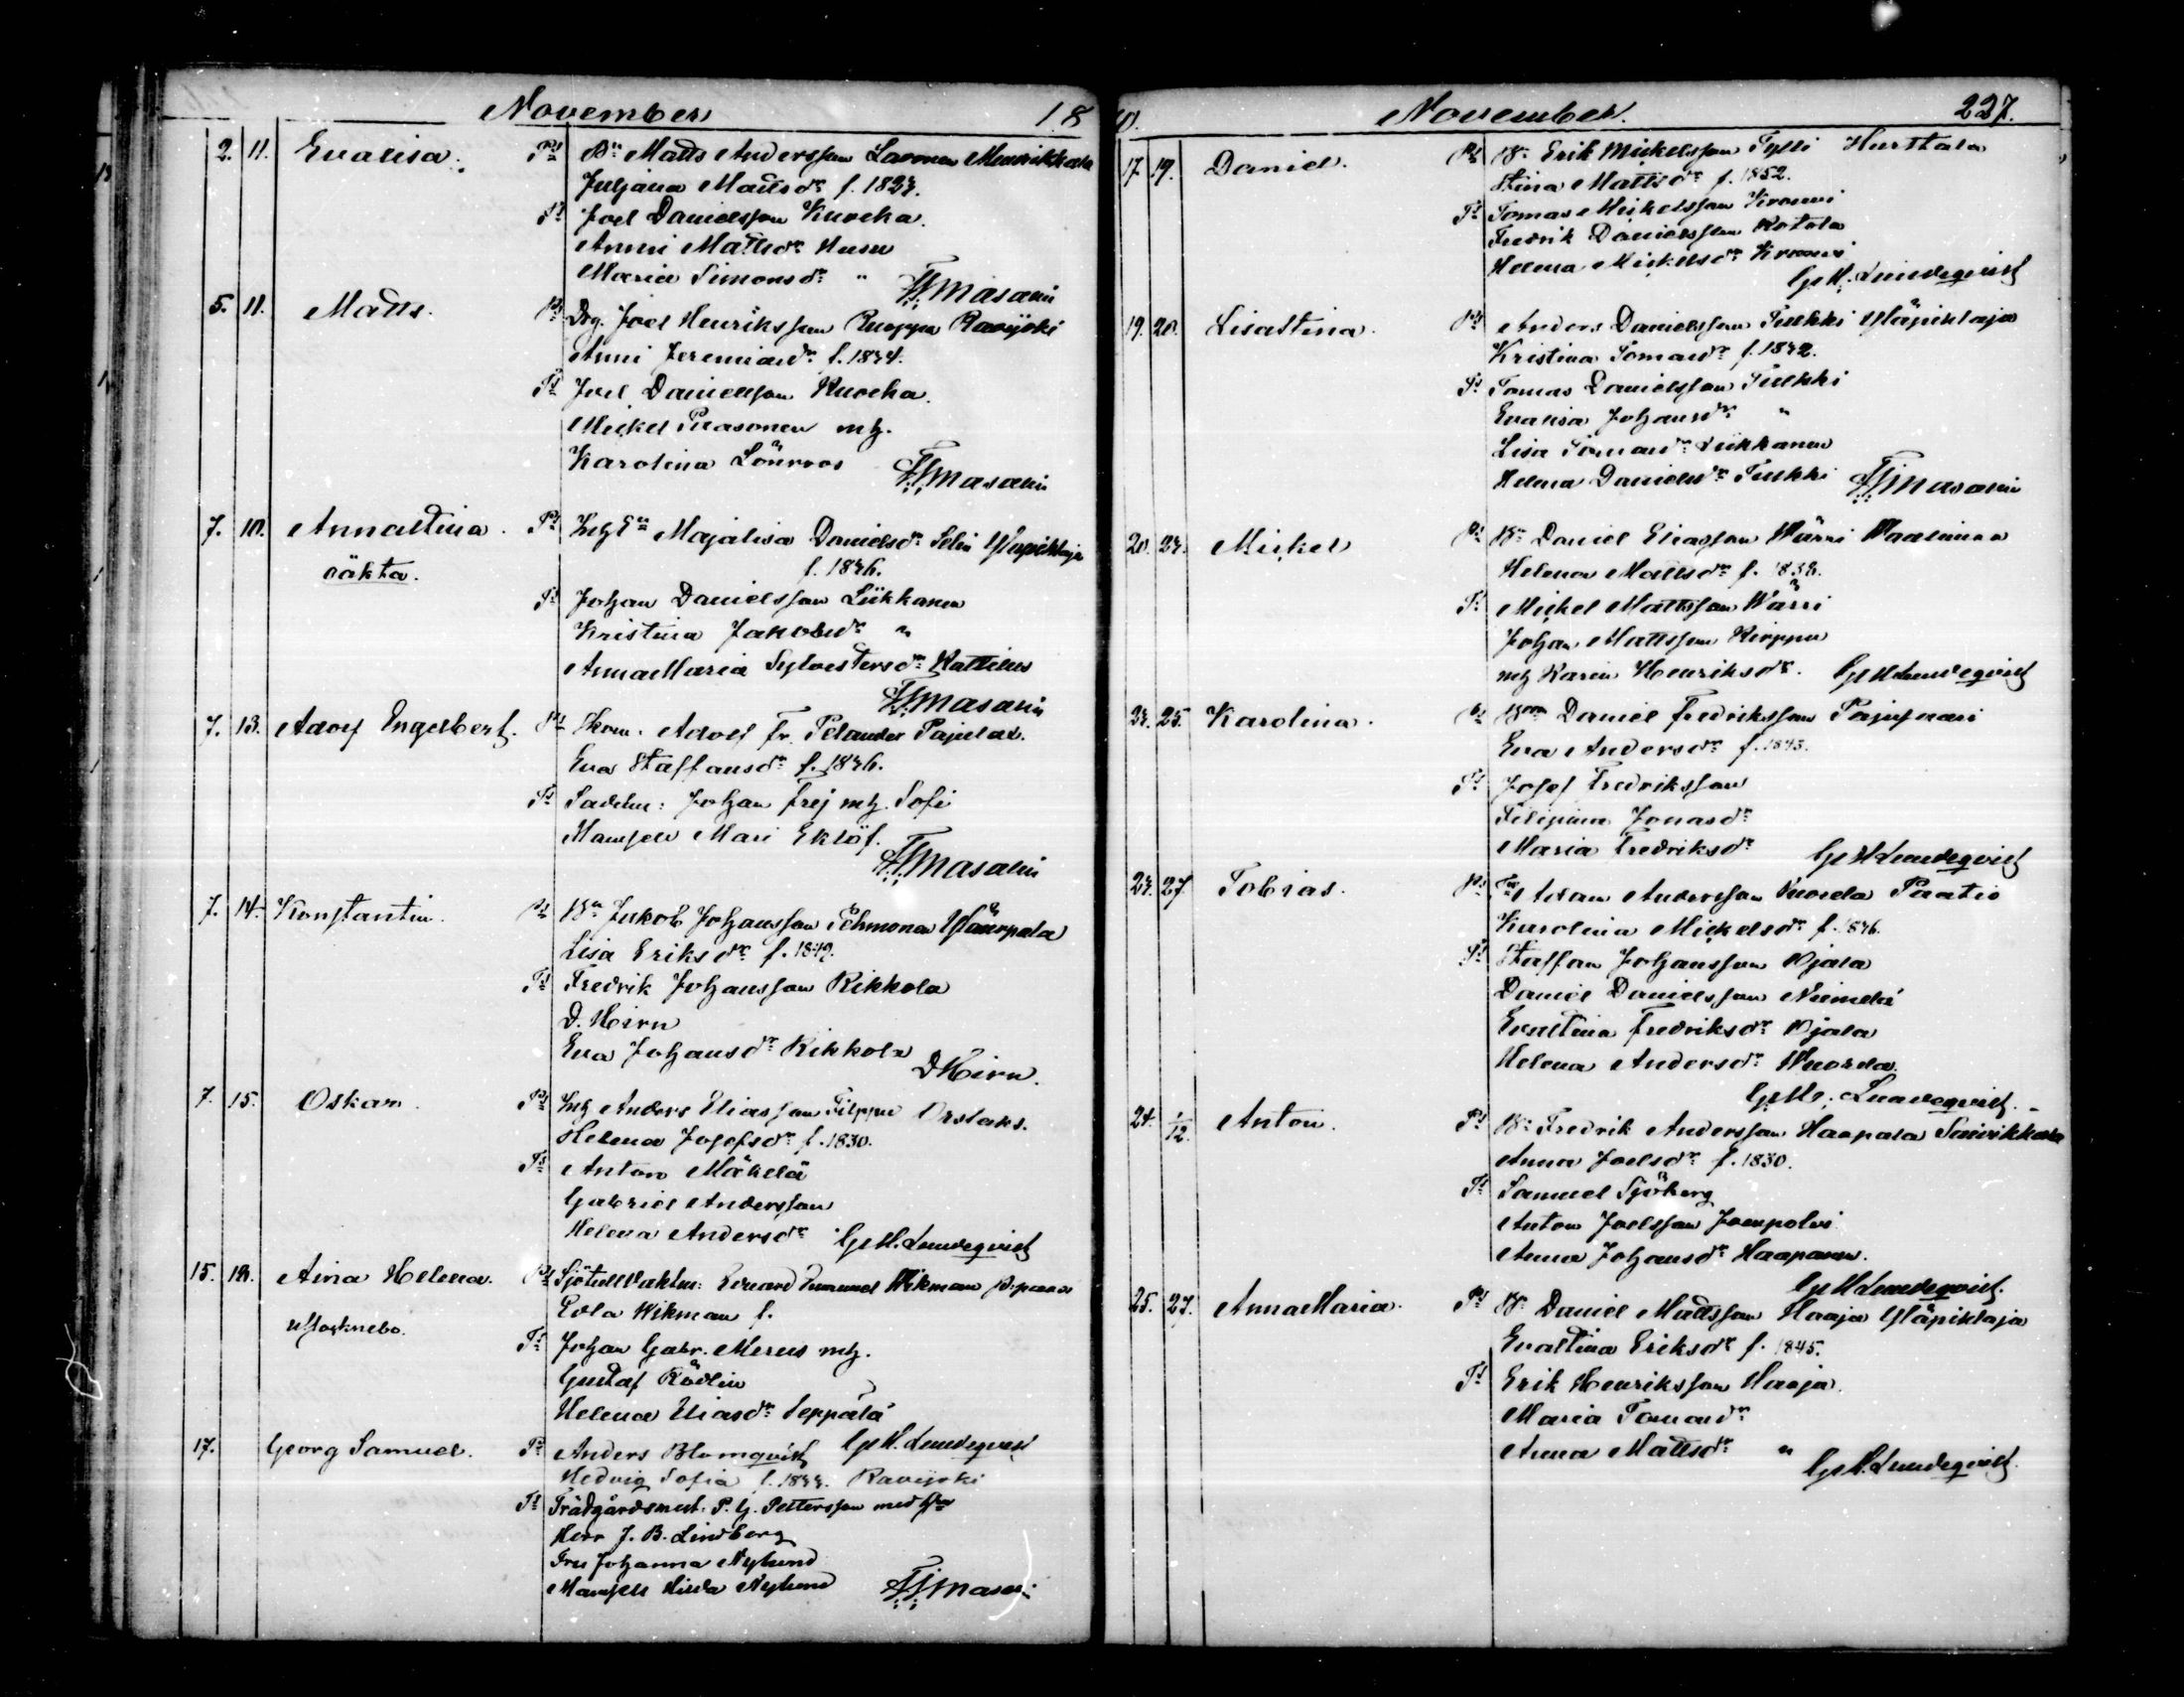 November 18
2. 11. Evalisa. Pr Bn Matts Andersson Lavonen
Juljana Mattsdr f. 1827.
Tt Joel Danielsson Kuocha.
Anni Mattsdr Husu
Maria Simonsdr "
5. 11. Matts. Pr Drg. Joel Henriksson Ruoppa Ravijoki
Anni Jeremiaedr f. 1834.
Tt Joel Danielsson Kuocha.
Mickel Pirasonen mh.
Karolina Lönnroos
7. 10. Annastina Pr Majalisa Danielsdr Selin
oäkta. f. 1836.
Tt Johan Danielsson Liikkanen
Kristina Jakobsdr "
Anna Maria Sylvestersdr
7. 13. Adolf Engelbert. Pr Skom. Adolf Fr. Pelander Pajulax.
Eva Staffansdr f. 1836.
Tt Sadelm: Johan Frej mh. Sofi
Mamsell Mari Eklöf.
7. 14. Konstantin. Pr Bn Jakob Johansson
Lisa Eriksdr f.
Tt Fredrik Johansson Rikkola
D. Hirn
Eva Johansdr Rikkola
D Hirn.
7. 15. Oskar. Pr Inh Anders Eliasson Filppu Orslaks.
Helena Josefsdr f. 1830.
Tt Anton Mäkelä
Gabriel Andersson
Helena Andersdr G. H. Lundeqvist
15. 18. Aina Helena. Pr Sjötullvaktm: Eduard Emanuel Wikman
Edla Wikman f.
Tt Johan Gabr. Merus mh.
Gustaf Rödlin
Helena Eliasdr Seppälä
G. H. Lundeqvist
17. Georg Samuel. Pr Anders Blomqvist
Hedvig Sofia f. Ravijoki
Tt Trädgårdsmest. P. G. Pettersson med fru
Herr J. B. Lindberg
Fru Johanna Nylund
Mamsell Hilda Nylund
70. November. 227.
17. 19. Daniel. Pr Bn Erik Mickelsson Tylli Hurttala
Stina Mattsdr f. 1852.
Tt Tomas Mickelsson
Fredrik Danielsson Kotola
Helena Mickelsdr
G. H. Lundeqvist
19. 20. Lisastina. Pr Anders Danielsson Tulkki
Kristina Tomasdr f. 1842.
Tt Tomas Danielsson Tulkki
Evalisa Johansdr "
Lisa Tomasdr Liikkanen
Helena Danielsdr Tulkki
20. 27. Mickel Pr Bn Daniel Eliasson Wärri
Helena Mattsdr f. 1838.
Tt Mickel Mattsson Wärri
Johan Mattsson Kirppu
mh Karin Henriksdr. G. H. Lundeqvist
25. Karolina. Pr Daniel Fredriksson
Eva Andersdr f. 1843.
Tt Josef Fredriksson
Filipina Jonasdr
Maria Fredriksdr
G. H. Lundeqvist
27. Tobias. Pr Adam Andersson Vuorela Paatio
Karolina Mickelsdr f. 1836.
Tt Staffan Johansson Ojala
Daniel Danielsson Niemelä
Evastina Fredriksdr Ojala
Helena Andersdr Wuorela.
G. H. Lundeqvist.
24. 1/12. Anton. Pr Bn Fredrik Andersson Haapala
Anna Joelsdr f. 1830.
Tt Samuel Sjöberg
Anton Joelsson
Anna Johansdr Haapanen.
G. H. Lundeqvist.
25. 27. Anna Maria. Pr Bn Daniel Mattsson Haaja
Evastina Eriksdr f. 1845.
Tt Erik Henriksson Haaja.
Maria Tomasdr
Anna Mattsdr "
G. H. Lundeqvist.